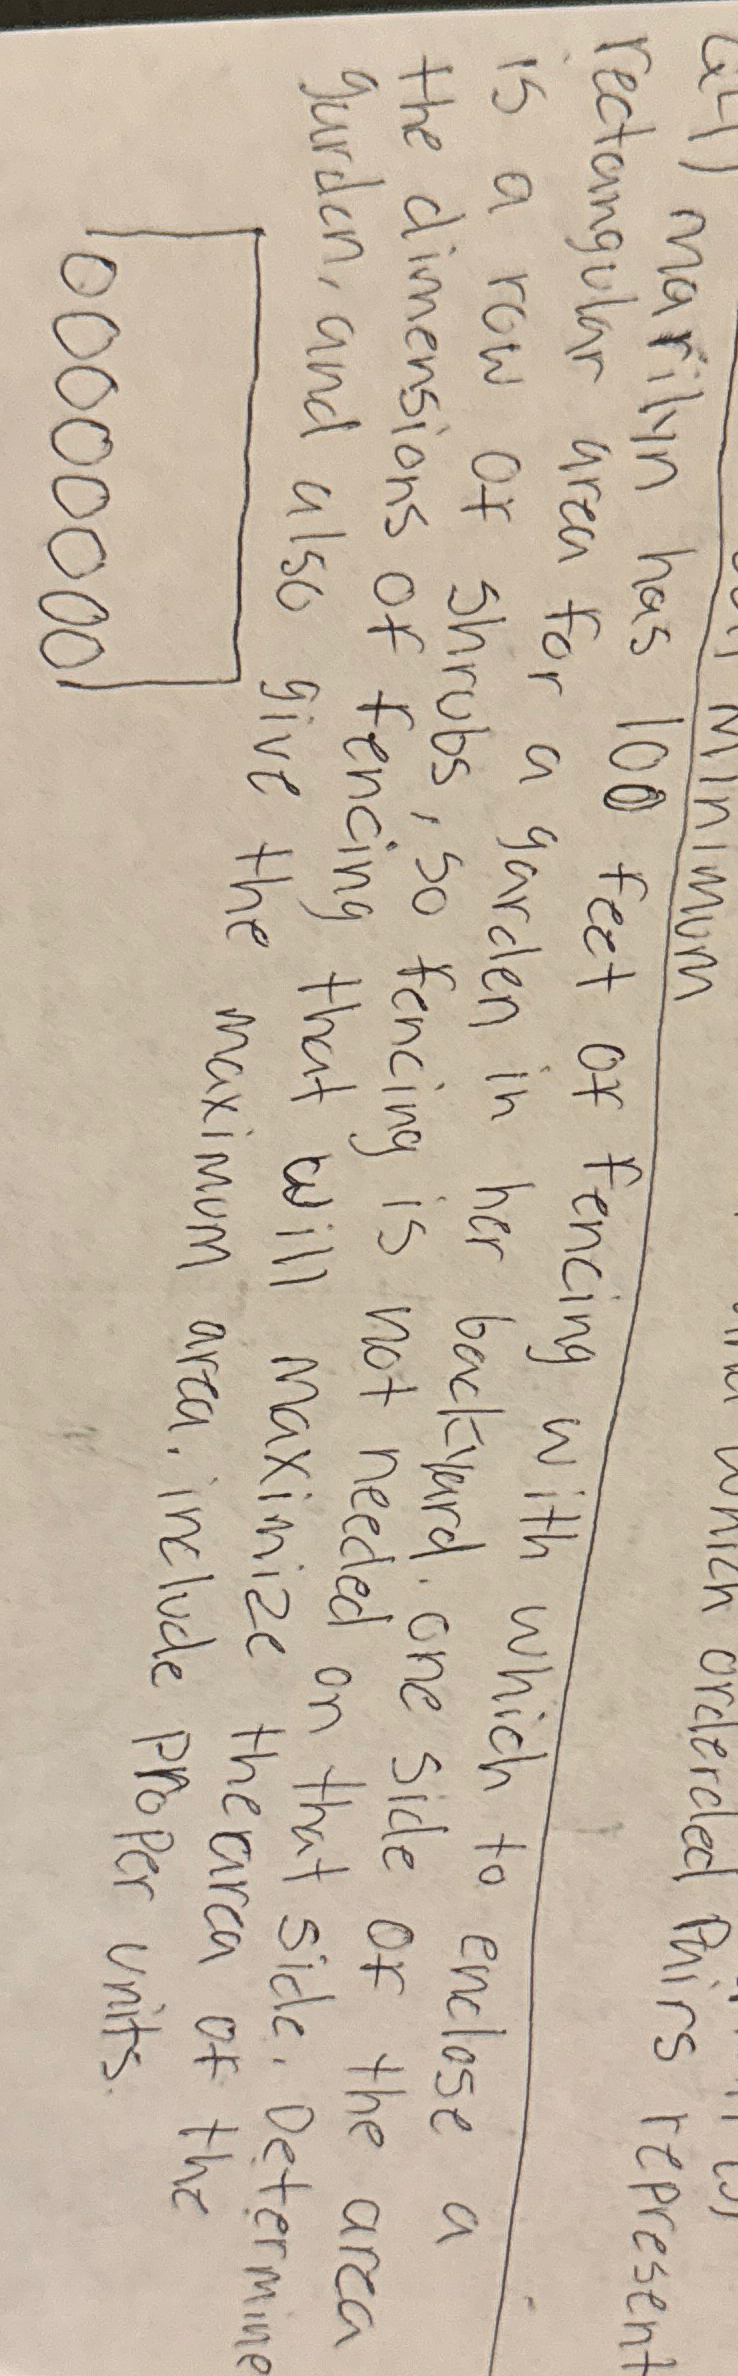 minimum
which orderded Pairs represent
marilyn has 100 feet of fencing with which to enclose a
rectangular area for a garden in her backyard. one side of the area
is a row of shrubs, so fencing is not needed on that side. Determine
the dimensions of fencing that will maximize the area of the
gurden, and also give the maximum area. include proper units.